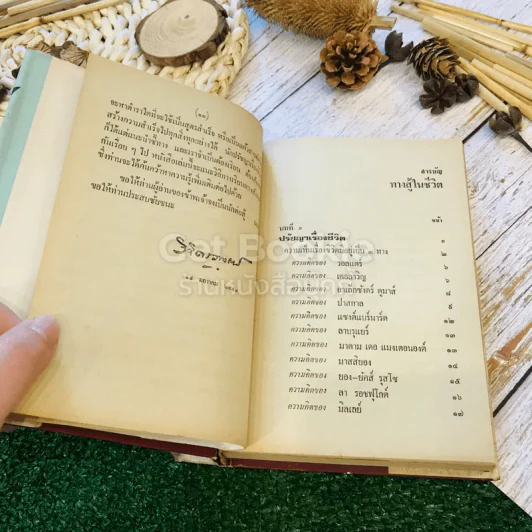 (๑๑)
จะหาตำราใดที่จะใช้เป็นสูตรสำเร็จ
สร้างความสำเร็จในทุกสิ่งทุกอย่างได้
ก็ได้แต่แนะนำชี้ทาง
กันเรื่อย ๆ ไป
ซึ่งท่านจะได้ค้นคว้าหาความรู้เพิ่มเติมต่อไปด้วย
ขอให้ท่านผู้อ่านของข้าพเจ้าจงเป็นนักต่อสู้
ขอให้ท่านประสบชัยชนะ
สารบัญ
ทางสู้ในชีวิต
หน้า
บทที่ ๑
ปรัชญาเรื่องชีวิต ๑
ความเห็นเรื่องชีวิตมีอยู่เป็น ๓ ทาง ๒
ความคิดของ วอลแตร์ ๔
ความคิดของ
ความคิดของ อาเล็กซังดร์ ดูมาส์ ๘
ความคิดของ ปาสกาล ๙
ความคิดของ แซงต์แบร์นาร์ด ๑๒
ความคิดของ ลาบรูแยร์ ๑๓
ความคิดของ มาดาม เดอ แมงเตอนองต์ ๑๓
ความคิดของ มาสสิยอง ๑๔
ความคิดของ ยอง-ยัคส์ รุสโซ ๑๕
ความคิดของ ลา รอชฟูโกด์ ๑๖
ความคิดของ มิลเลย์ ๑๗
Get Bookie
ร้านหนังสือบุ๊กกี้